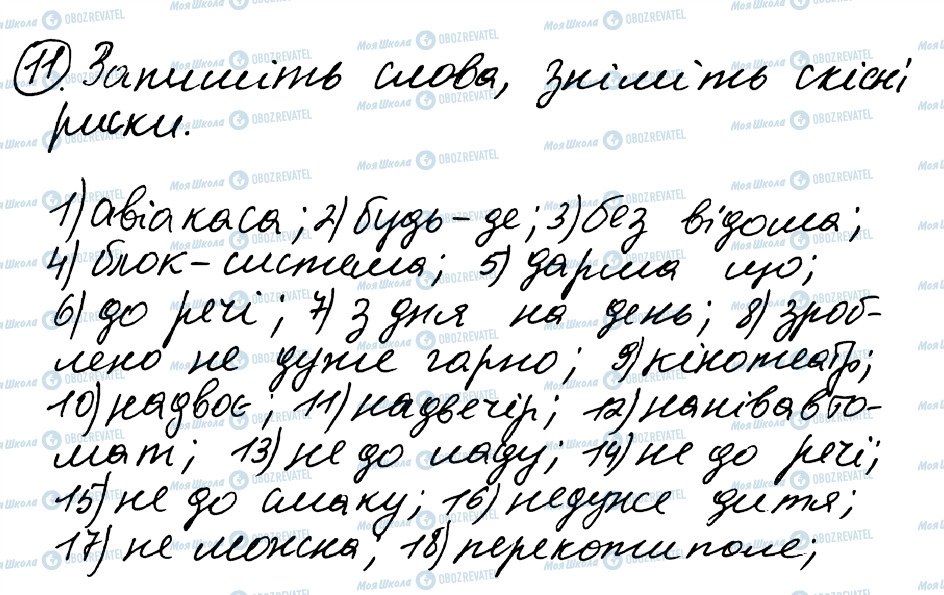 11. Запишіть слова, зніміть скісні
риски.
1) авіакаса; 2) будь-де; 3) без відома;
4) блок-система; 5) дарма що;
6) до речі; 7) з дня на день; 8) зроб-
лено не дуже гарно; 9) кінотеатр;
10) надвоє; 11) надвечір; 12) напівавто-
мат; 13) не до ладу; 14) не до речі;
15) не до смаку; 16) недуже дитя;
17) не можна; 18) перекотиполе;